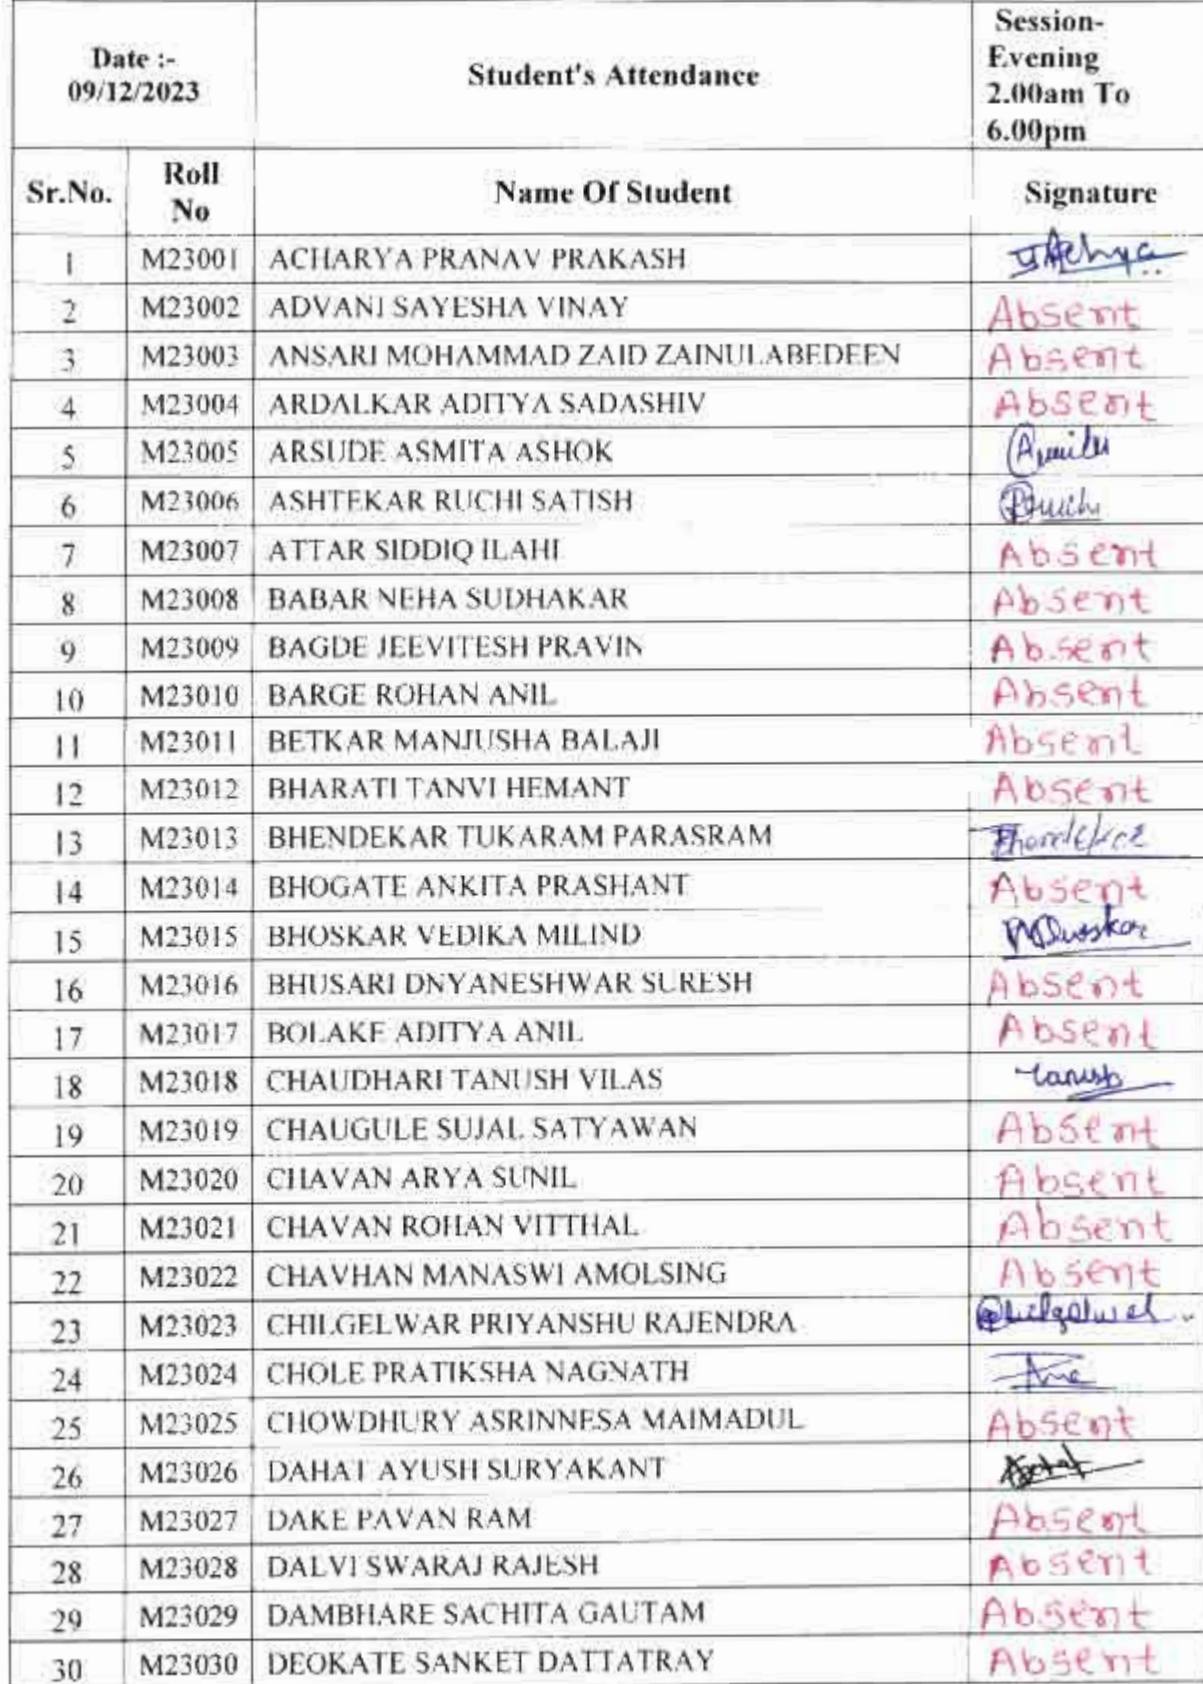 Date :-
09/12/2023
Student's Attendance
Session-
Evening
2.00am To
6.00pm
Sr.No. Roll No Name Of Student Signature
1 M23001 ACHARYA PRANAV PRAKASH
2 M23002 ADVANI SAYESHA VINAY Absent
3 M23003 ANSARI MOHAMMAD ZAID ZAINULABEDEEN Absent
4 M23004 ARDALKAR ADITYA SADASHIV Absent
5 M23005 ARSUDE ASMITA ASHOK
6 M23006 ASHTEKAR RUCHI SATISH
7 M23007 ATTAR SIDDIQ ILAHI Absent
8 M23008 BABAR NEHA SUDHAKAR Absent
9 M23009 BAGDE JEEVITESH PRAVIN Absent
10 M23010 BARGE ROHAN ANIL Absent
11 M23011 BETKAR MANJUSHA BALAJI Absent
12 M23012 BHARATI TANVI HEMANT Absent
13 M23013 BHENDEKAR TUKARAM PARASRAM
14 M23014 BHOGATE ANKITA PRASHANT Absent
15 M23015 BHOSKAR VEDIKA MILIND
16 M23016 BHUSARI DNYANESHWAR SURESH Absent
17 M23017 BOLAKE ADITYA ANIL Absent
18 M23018 CHAUDHARI TANUSH VILAS Tanush
19 M23019 CHAUGULE SUJAL SATYAWAN Absent
20 M23020 CHAVAN ARYA SUNIL Absent
21 M23021 CHAVAN ROHAN VITTHAL Absent
22 M23022 CHAVHAN MANASWI AMOLSING Absent
23 M23023 CHILGELWAR PRIYANSHU RAJENDRA
24 M23024 CHOLE PRATIKSHA NAGNATH
25 M23025 CHOWDHURY ASRINNESA MAIMADUL Absent
26 M23026 DAHAT AYUSH SURYAKANT
27 M23027 DAKE PAVAN RAM Absent
28 M23028 DALVI SWARAJ RAJESH Absent
29 M23029 DAMBHARE SACHITA GAUTAM Absent
30 M23030 DEOKATE SANKET DATTATRAY Absent